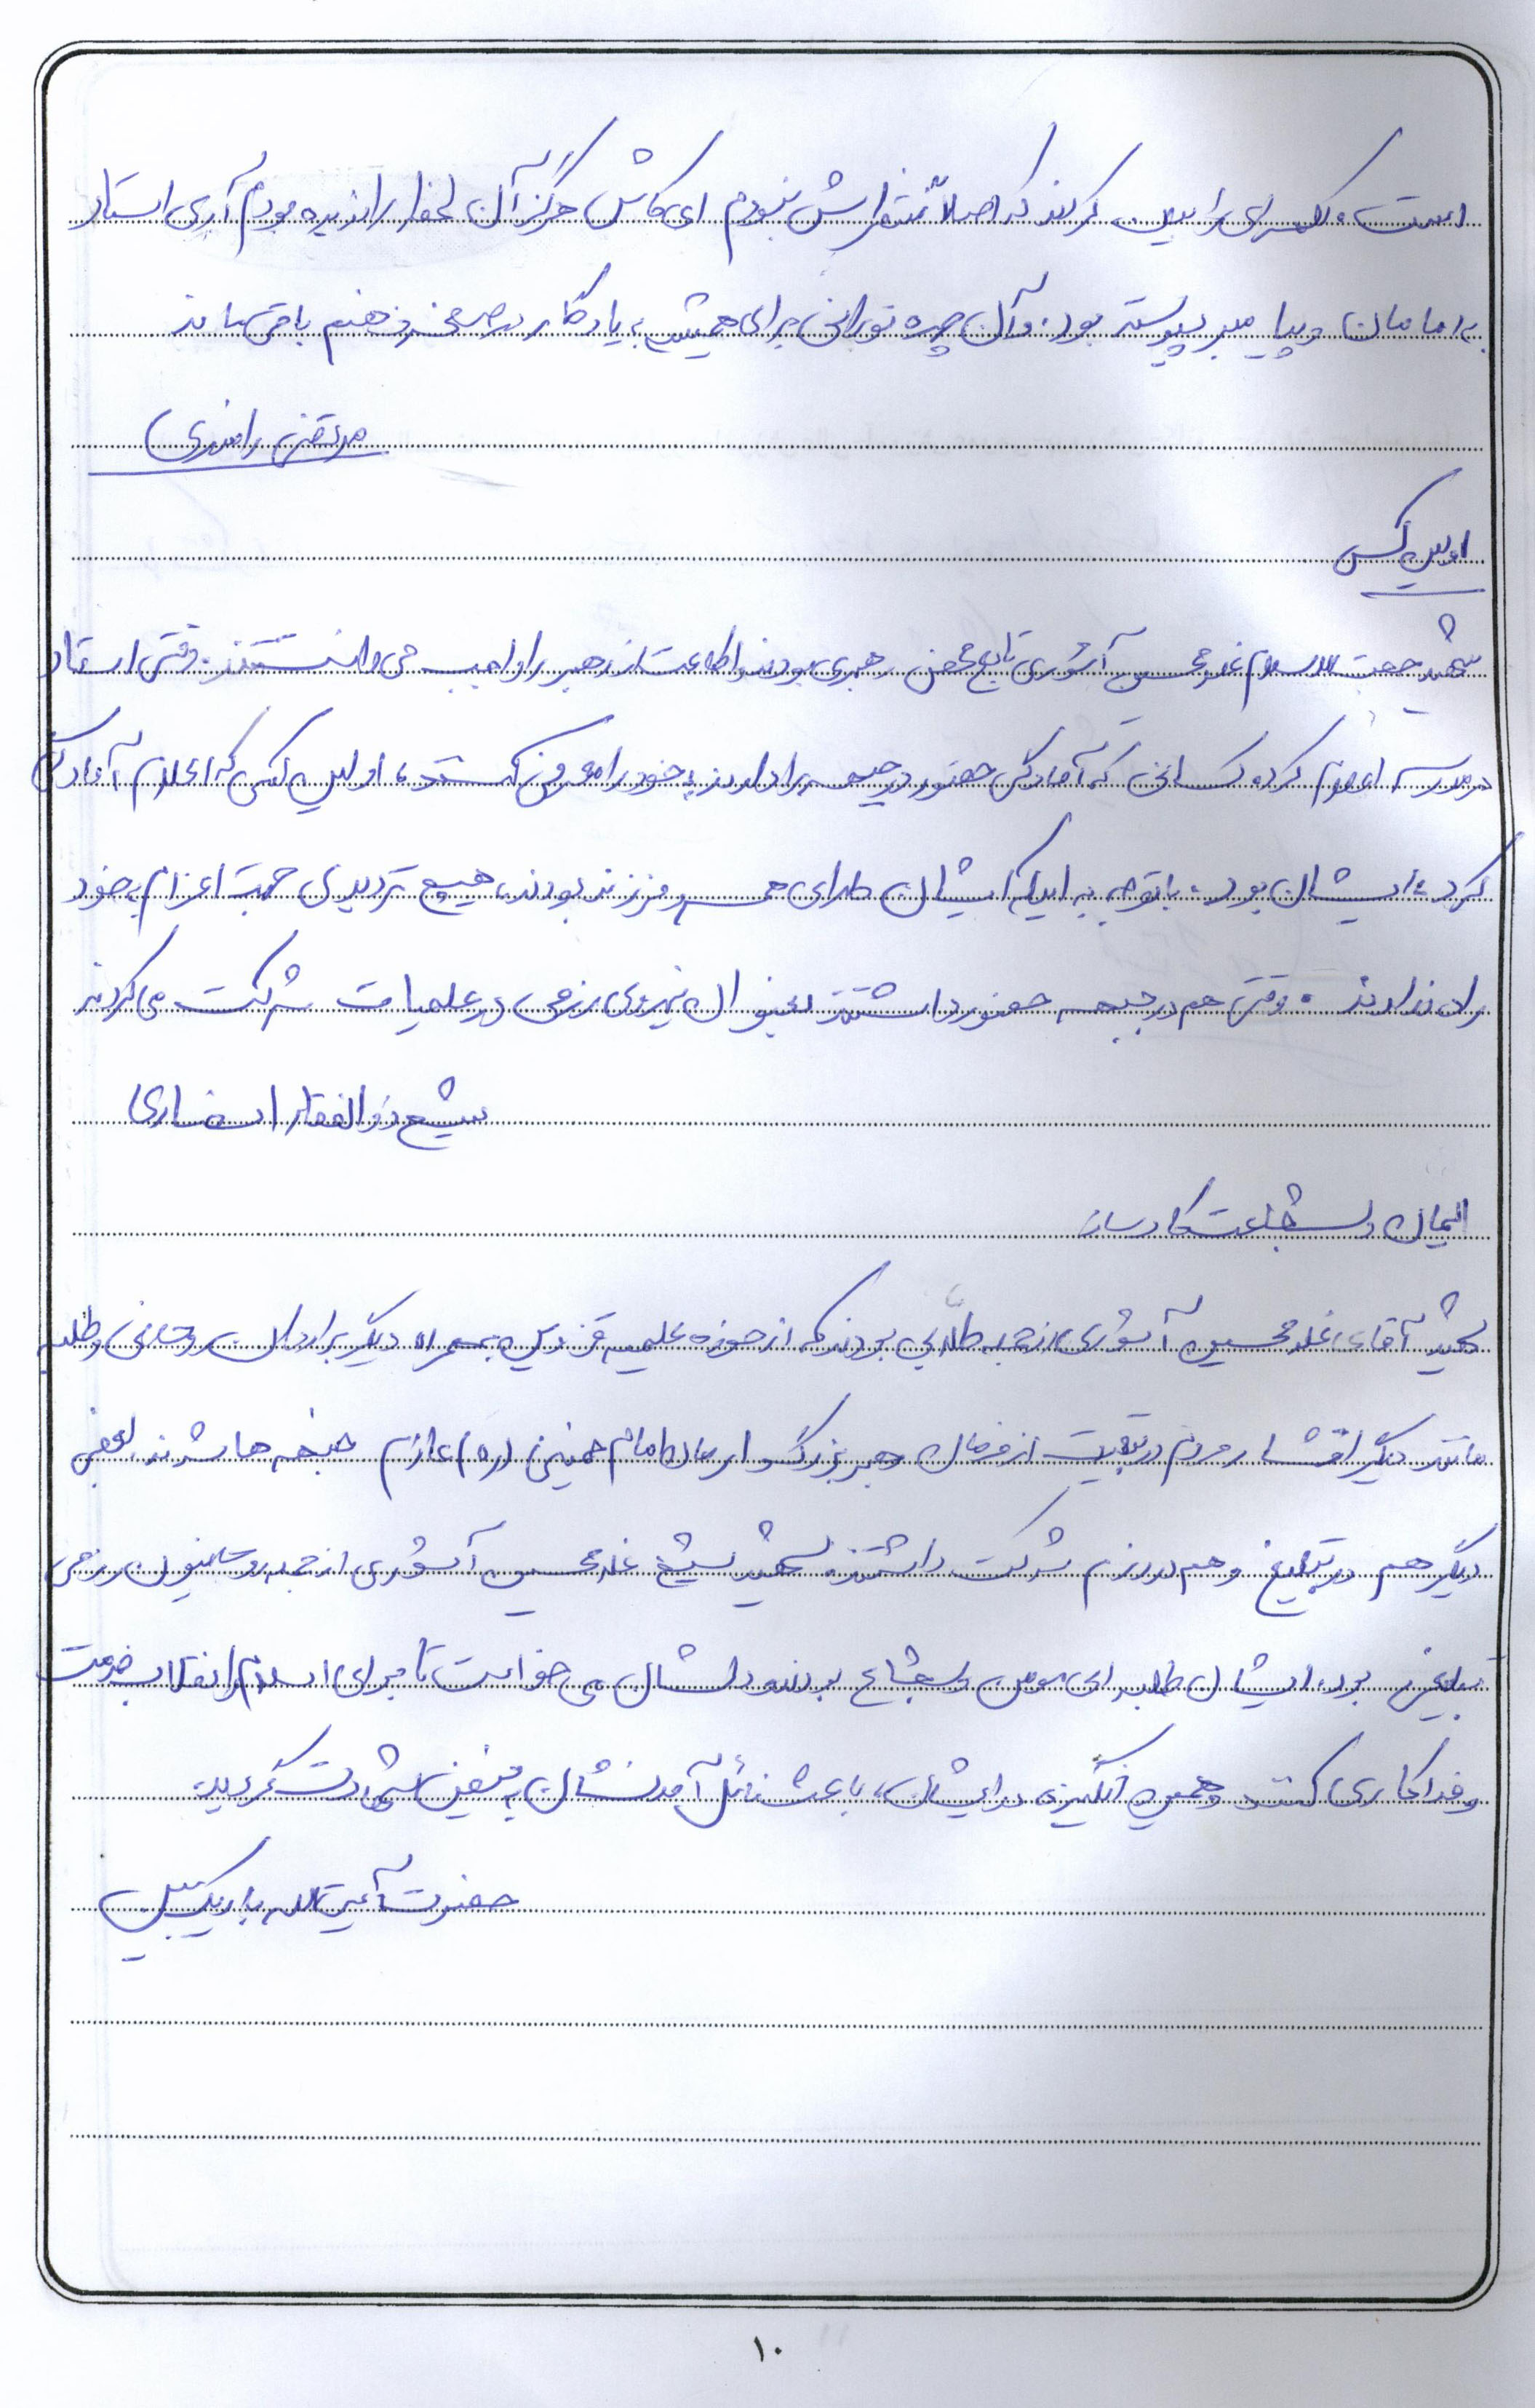 است، کلمه‌ای را بیان کردند که اصلاً منتظرش نبودم ای کاش هرگز آن لحظه را ندیده بودم آری استاد
به امامان و پیامبر پیوسته بود. و آن چهره نورانی برای همیشه به یادگار در صفحه ذهنم باقی ماند
مرتضی
اولین کس
شهید حجت الاسلام غلامحسین آشوری تابع محض رهبری بودند و اطاعت از رهبر را واجب می دانستند. وقتی استاد
در مدرسه اعلام کرد، کسانی که آمادگی حضور در جبهه را دارند خود را معرفی کنند، اولین کسی که اعلام آمادگی
کرد، ایشان بود، با توجه به اینکه ایشان دارای همسر و فرزند بودند، هیچ تردیدی جهت اعزام به خود
راه ندادند. وقتی هم در جبهه حضور داشتند بعنوان نیروی رزمی در عملیات شرکت می کردند
شیخ ذوالفقار
ایمان و شجاعت
شهید آقای غلامحسین آشوری از جمله طلّابی بودند که از حوزه علمیه قزوین به همراه دیگر برادران روحانی و طلبه
مانند دیگر اقشار مردم در تبعیت از فرمان رهبر بزرگوارمان امام خمینی (ره) عازم جبهه ها شدند، بعضی
دیگر هم در تبلیغ و هم در رزم شرکت داشتند. شهید شیخ غلامحسین آشوری از جمله روحانیون رزمی
تبلیغی بود، ایشان طلبه ای مومن و شجاع بودند و دلشان می خواست تا برای اسلام و انقلاب خدمت
و فداکاری کنند و همین انگیزه در ایشان، باعث نائل آمدنشان به فیض شهادت گردید.
حضرت آیت الله باریک بین
۱۰